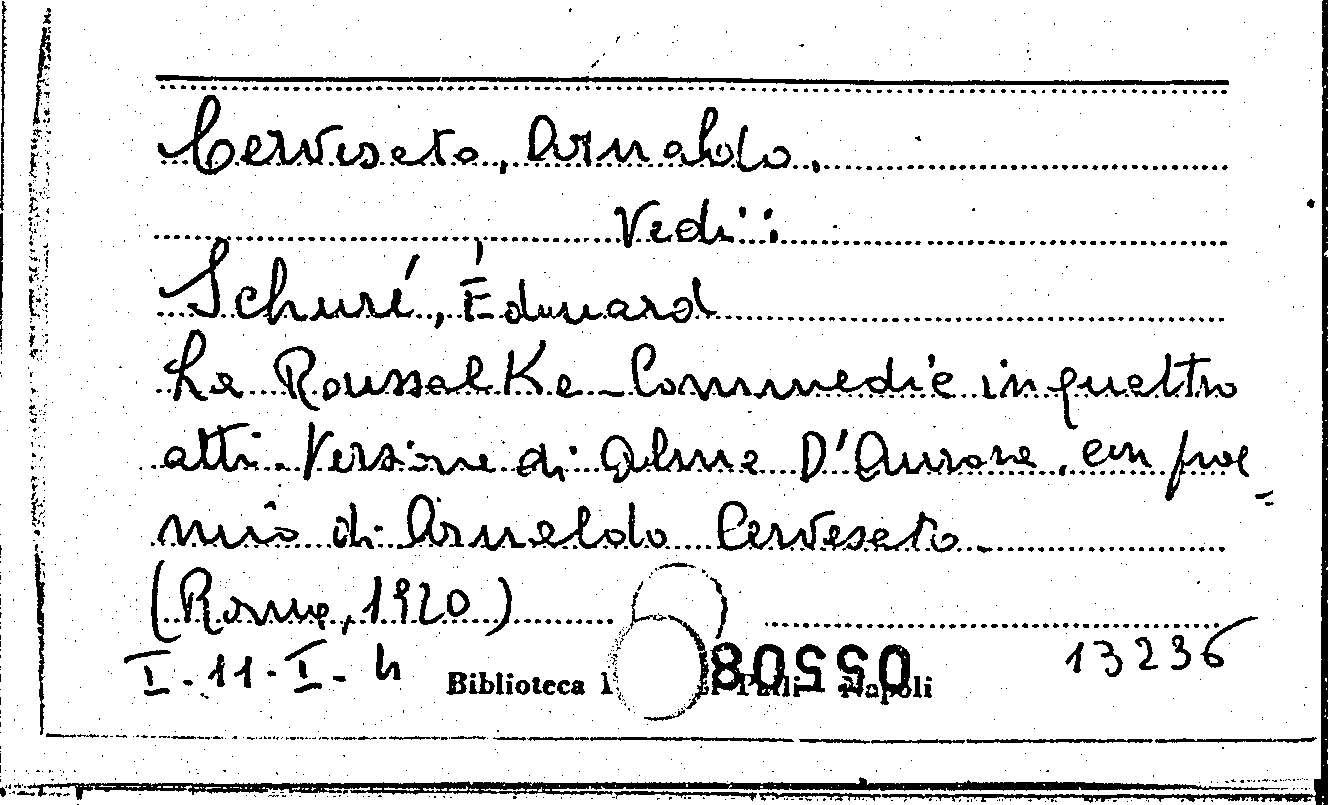 Cerveseto, Arnaldo.
Vedi:
Schuré, Éduard
La Roussalka - Commedia in quattro
atti. Versione di Alma D'Aurora, con proe=
mio di Arnaldo Cerveseto.
(Roma, 1920)
I-11-I-4
13236
Biblioteca Napoli
05508